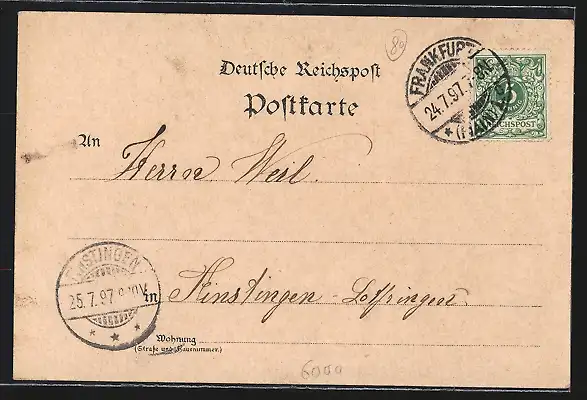 80
Deutsche Reichspost
Postkarte
FRANKFURT
24.7.97.7-8N.
* (MAIN) 1
REICHSPOST
An
Herrn Weil.
FINSTINGEN
25.7.97.9-10V.
in
Finstingen - Lothringen
Wohnung
(Straße und Hausnummer.)
6000